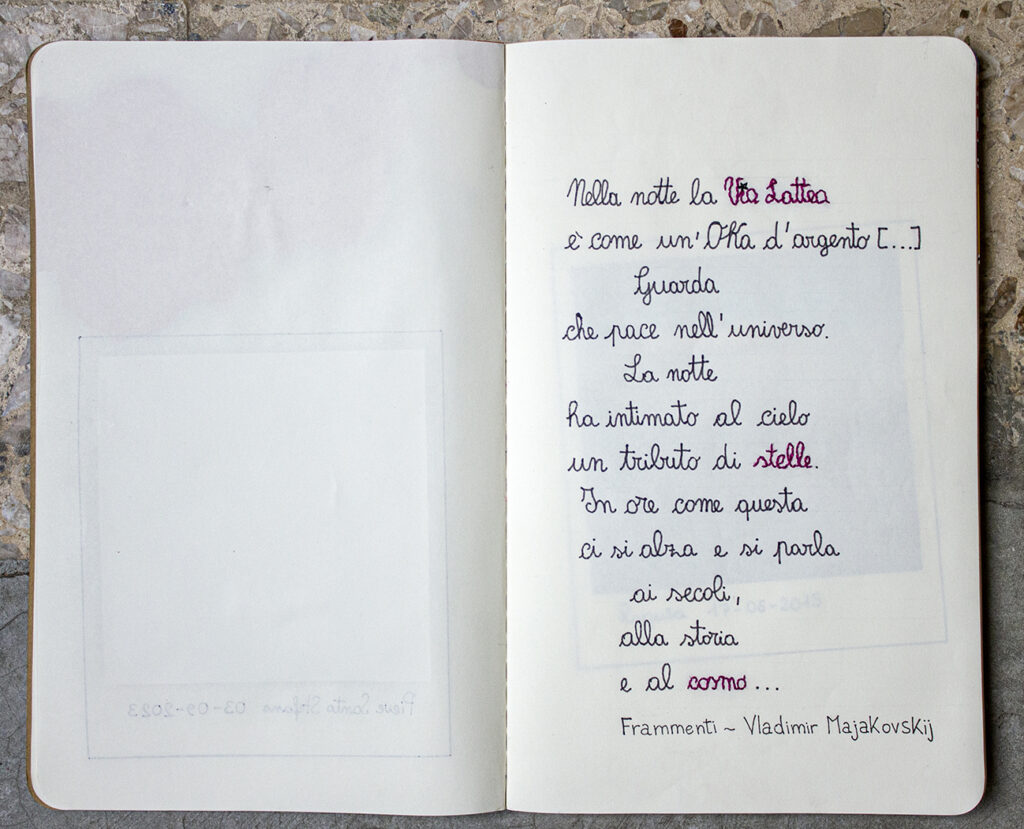 Nella notte la Via Lattea
è come un'OKa d'argento [...]
Guarda
che pace nell'universo.
La notte
ha intimato al cielo
un tributo di stelle.
In ore come questa
ci si alza e si parla
ai secoli,
alla storia
e al cosmo...
Frammenti ~ Vladimir MajaKovsKij
Pieve Santo Stefano 03-09-2023
17-06-2015